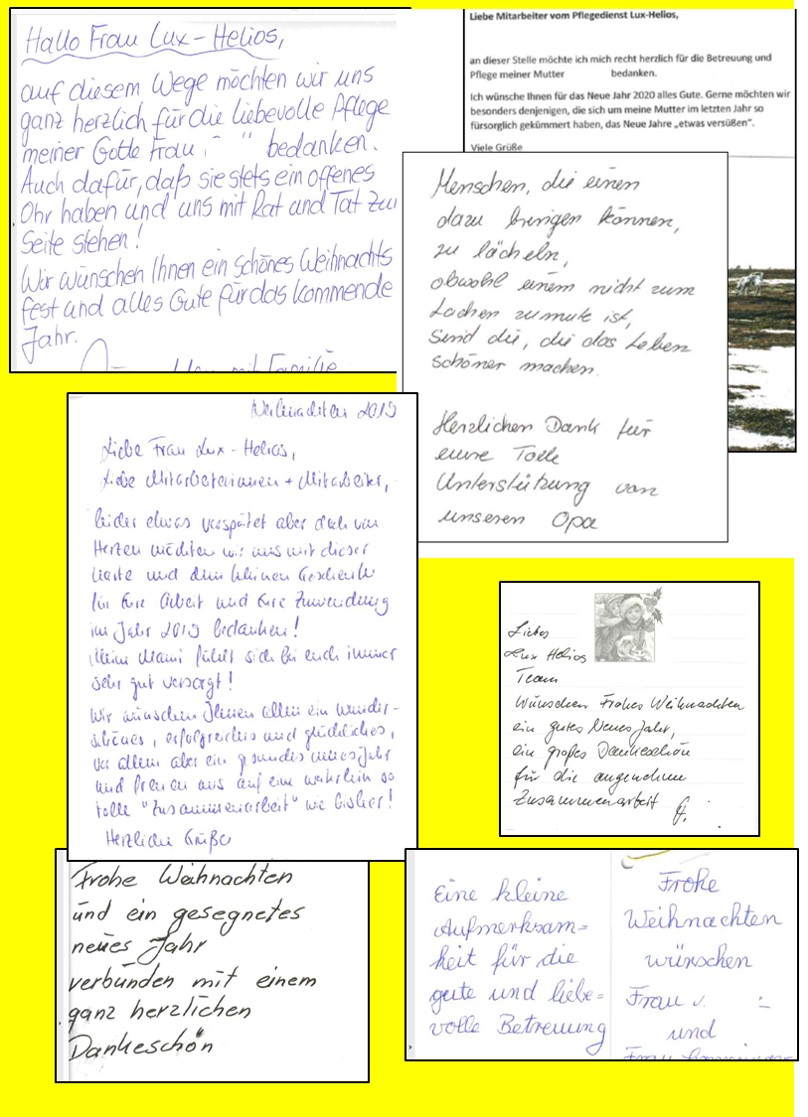 Hallo Frau Lux-Helios,
auf diesem Wege möchten wir uns
ganz herzlich für die liebevolle Pflege
meiner Gotte Frau " bedanken.
Auch dafür, daß sie stets ein offenes
Ohr haben und uns mit Rat und Tat zur
Seite stehen!
Wir wünschen Ihnen ein schönes Weihnachts
fest und alles Gute für das kommende
Jahr.
mit Familie
Liebe Mitarbeiter vom Pflegedienst Lux-Helios,
an dieser Stelle möchte ich mich recht herzlich für die Betreuung und
Pflege meiner Mutter bedanken.
Ich wünsche Ihnen für das Neue Jahr 2020 alles Gute. Gerne möchten wir
besonders denjenigen, die sich um meine Mutter im letzten Jahr so
fürsorglich gekümmert haben, das Neue Jahre „etwas versüßen".
Viele Grüße
Menschen, die einen
dazu bringen können,
zu lächeln,
obwohl einem nicht zum
Lachen zumute ist,
sind die, die das Leben
schöner machen.
Herzlichen Dank für
eure Tolle
Unterstützung von
unseren Opa
Weihnachten 2019
Liebe Frau Lux-Helios,
Liebe Mitarbeiterinnen + Mitarbeiter,
leider etwas verspätet aber doch von
Herzen möchten wir uns mit dieser
Karte und dem kleinen Geschenk
für Eure Arbeit und Eure Zuwendung
im Jahr 2019 bedanken!
Meine Mami fühlt sich bei euch immer
sehr gut versorgt!
Wir wünschen Ihnen allen ein wunder-
schönes, erfolgreiches und glückliches,
vor allem aber ein gesundes neues Jahr
und freuen uns auf eine weiterhin so
tolle "Zusammenarbeit" wie bisher!
Herzliche Grüße
Liebes
Lux Helios
Team
Wünschen Frohes Weihnachten
ein gutes Neues Jahr,
ein großes Dankeschön
für die angenehme
Zusammenarbeit
Frohe Weihnachten
und ein gesegnetes
neues Jahr
verbunden mit einem
ganz herzlichen
Dankeschön
Eine kleine
Aufmerksam=
keit für die
gute und liebe=
volle Betreuung
Frohe
Weihnachten
wünschen
Frau
und
Frau